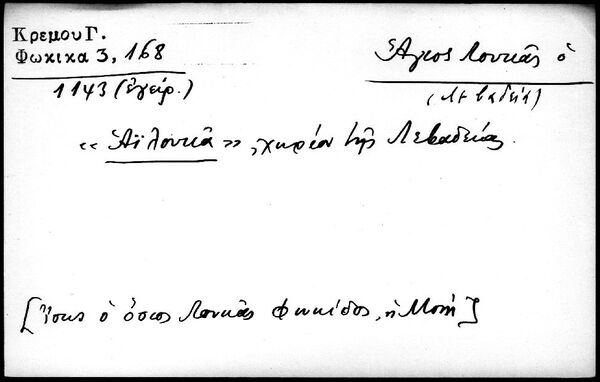 Κρεμου Γ.
Φωκικα 3, 168
1143 (ἐγείρ.)
Ἅγιος Λουκᾶς ὁ
(Λεβαδεία)
« Ἁϊ Λουκᾶ » , χωρίον τῆς Λεβαδείας.
[Ἴσως ὁ ὅσιος Λουκᾶς Φωκίδος, ἡ Μονή]